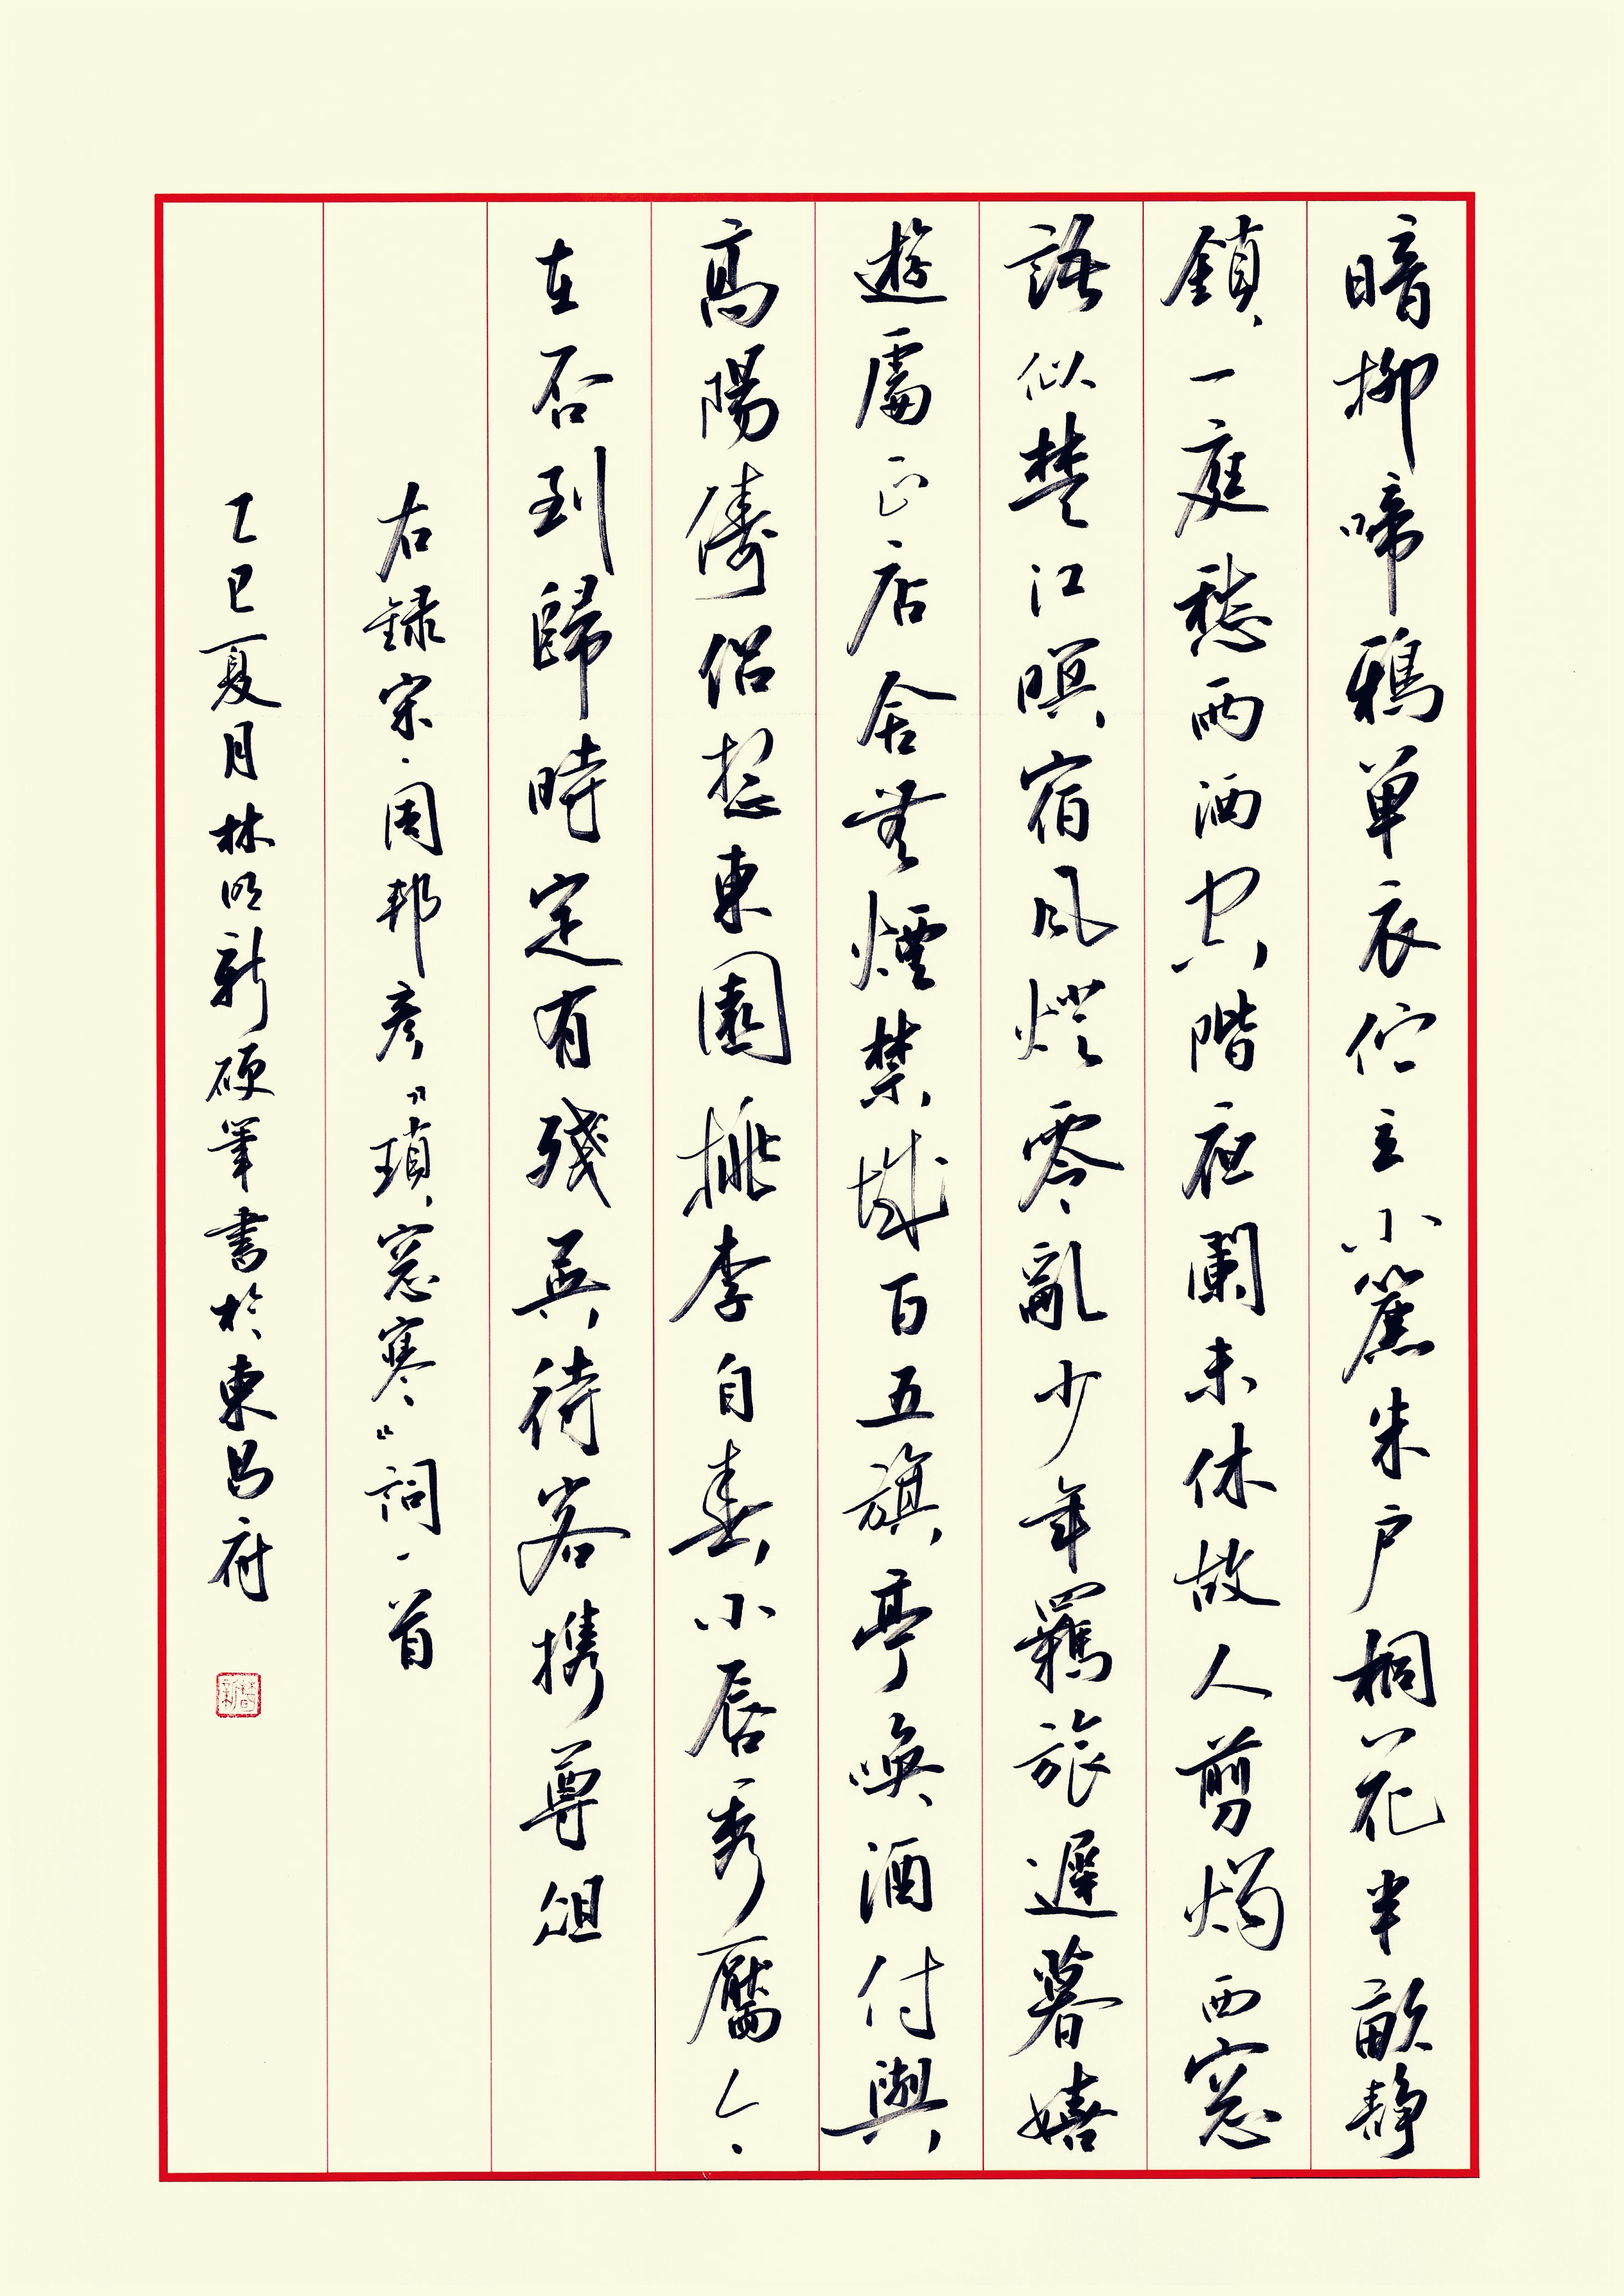 暗柳啼鴉单衣佇立小簾朱户桐花半畝静
鎖一庭愁雨洒空階夜闌未休故人剪燭西窓
語似楚江暝宿风燈零亂少年羈旅遲暮嬉
遊處正店舍無煙禁城百五旗亭喚酒付與
高陽儔侣想東園桃李自春小唇秀靨今
在否到歸時定有殘英待客携尊俎
右録宋·周邦彦“瑣窓寒”詞一首
乙巳夏月林明新硬筆書於東昌府